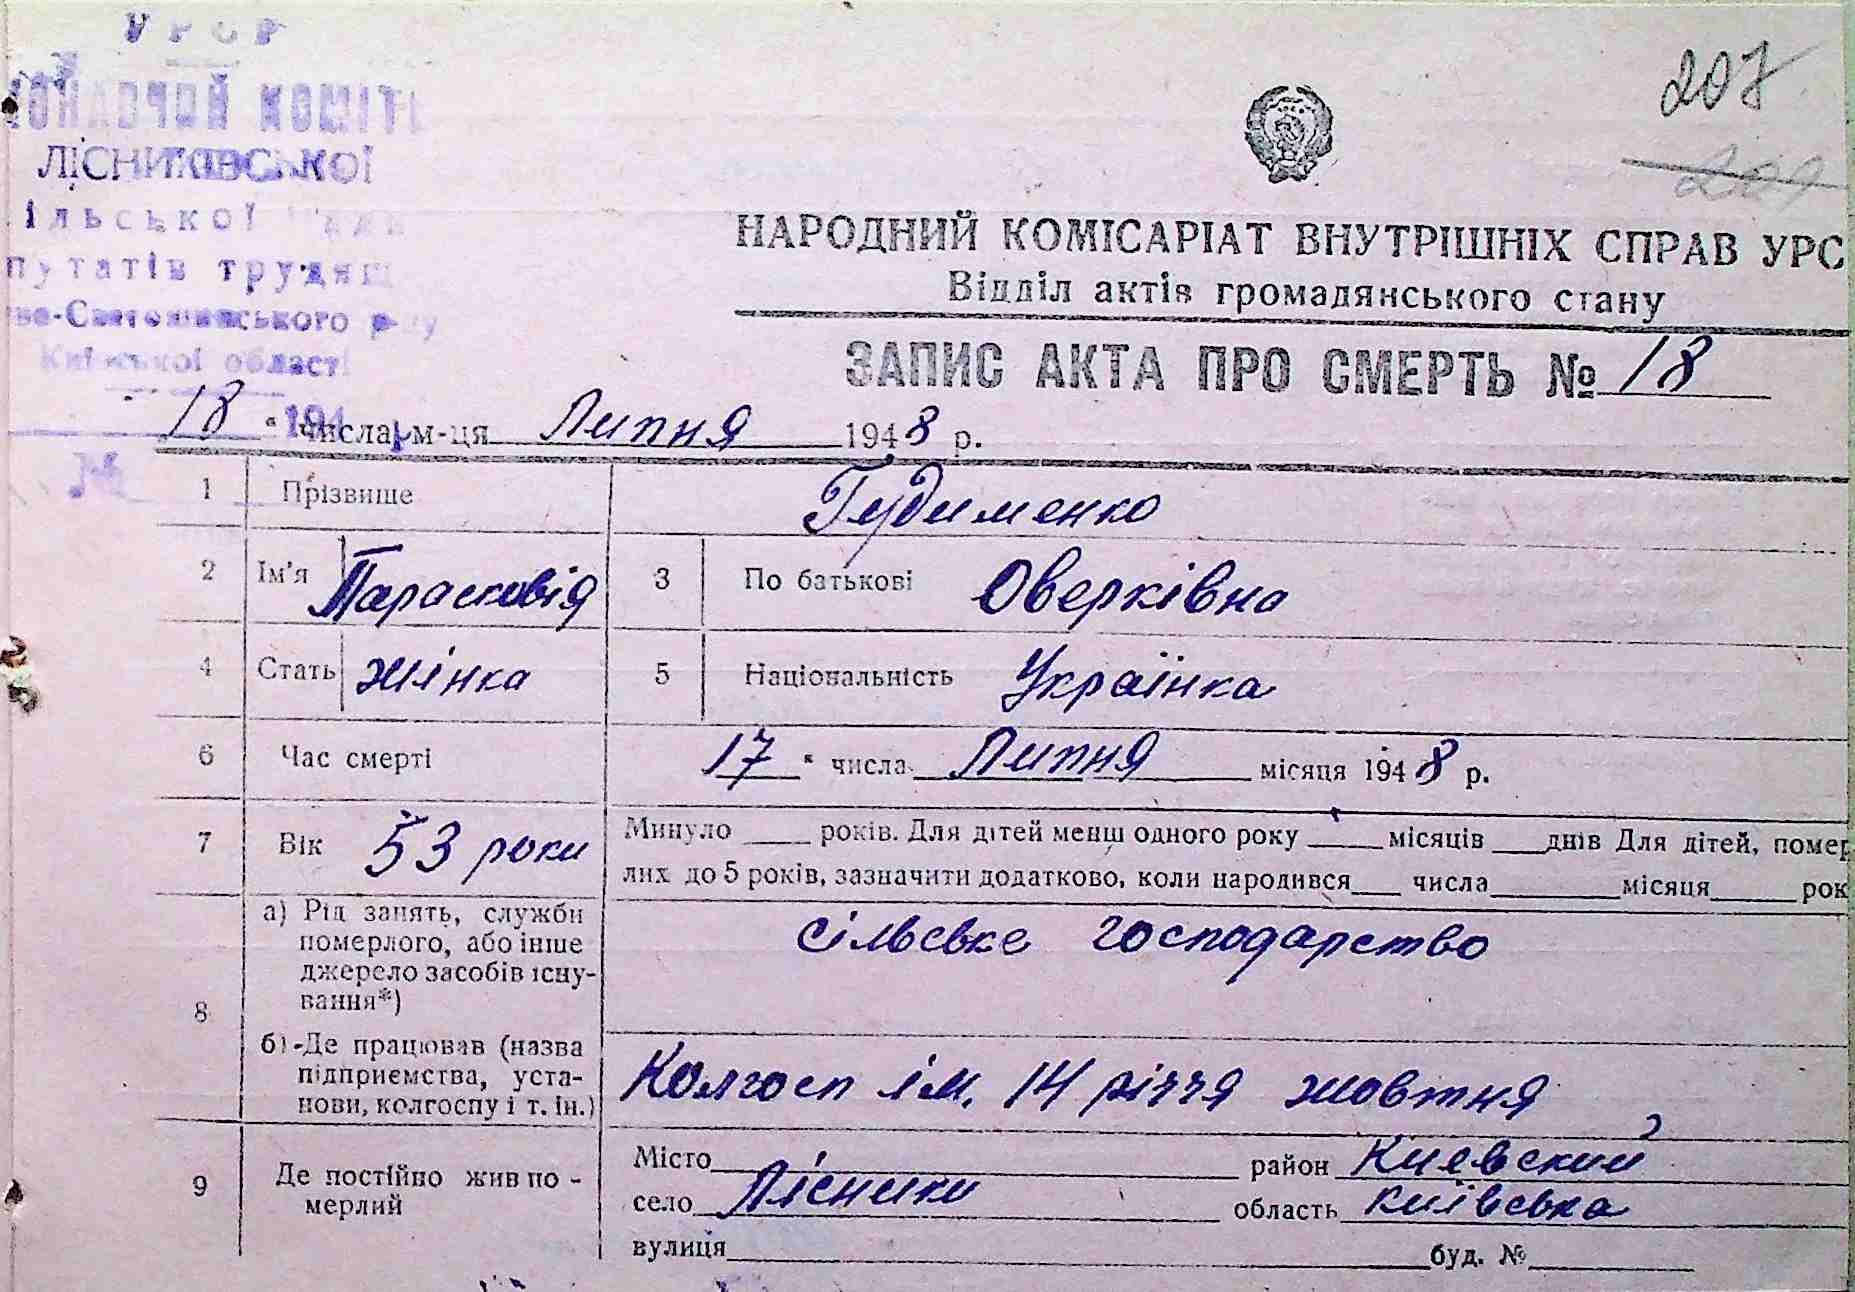 УРСР
КОМІТЕ
ЛІСНИКІВСЬКОЇ
ільської
путатів трудящ
во-Святошинського р-ну
Київської області
207
НАРОДНИЙ КОМІСАРІАТ ВНУТРІШНІХ СПРАВ УРС
Відділ актів громадянського стану
ЗАПИС АКТА ПРО СМЕРТЬ № 18
18 " числа, м-ця Липня 1948 р.
№
1 Прізвище Гудименко
2 Ім'я Парасковія 3 По батькові Оверківна
4 Стать жінка 5 Національність Українка
6 Час смерті 17 " числа Липня місяця 1948 р.
7 Вік 53 роки Минуло ___ років. Для дітей менш одного року ___ місяців ___ днів Для дітей, помер
лих до 5 років, зазначити додатково, коли народився ___ числа ___ місяця ___ рок
8 а) Рід занять, служби
померлого, або інше
джерело засобів існу-
вання*)
сільське господарство
б) Де працював (назва
підприємства, уста-
нови, колгоспу і т. ін.)
Колгосп ім. 14 річчя жовтня
9 Де постійно жив по-
мерлий
Місто ___ район Киевский
село Лісники область київська
вулиця ___ буд. № ___